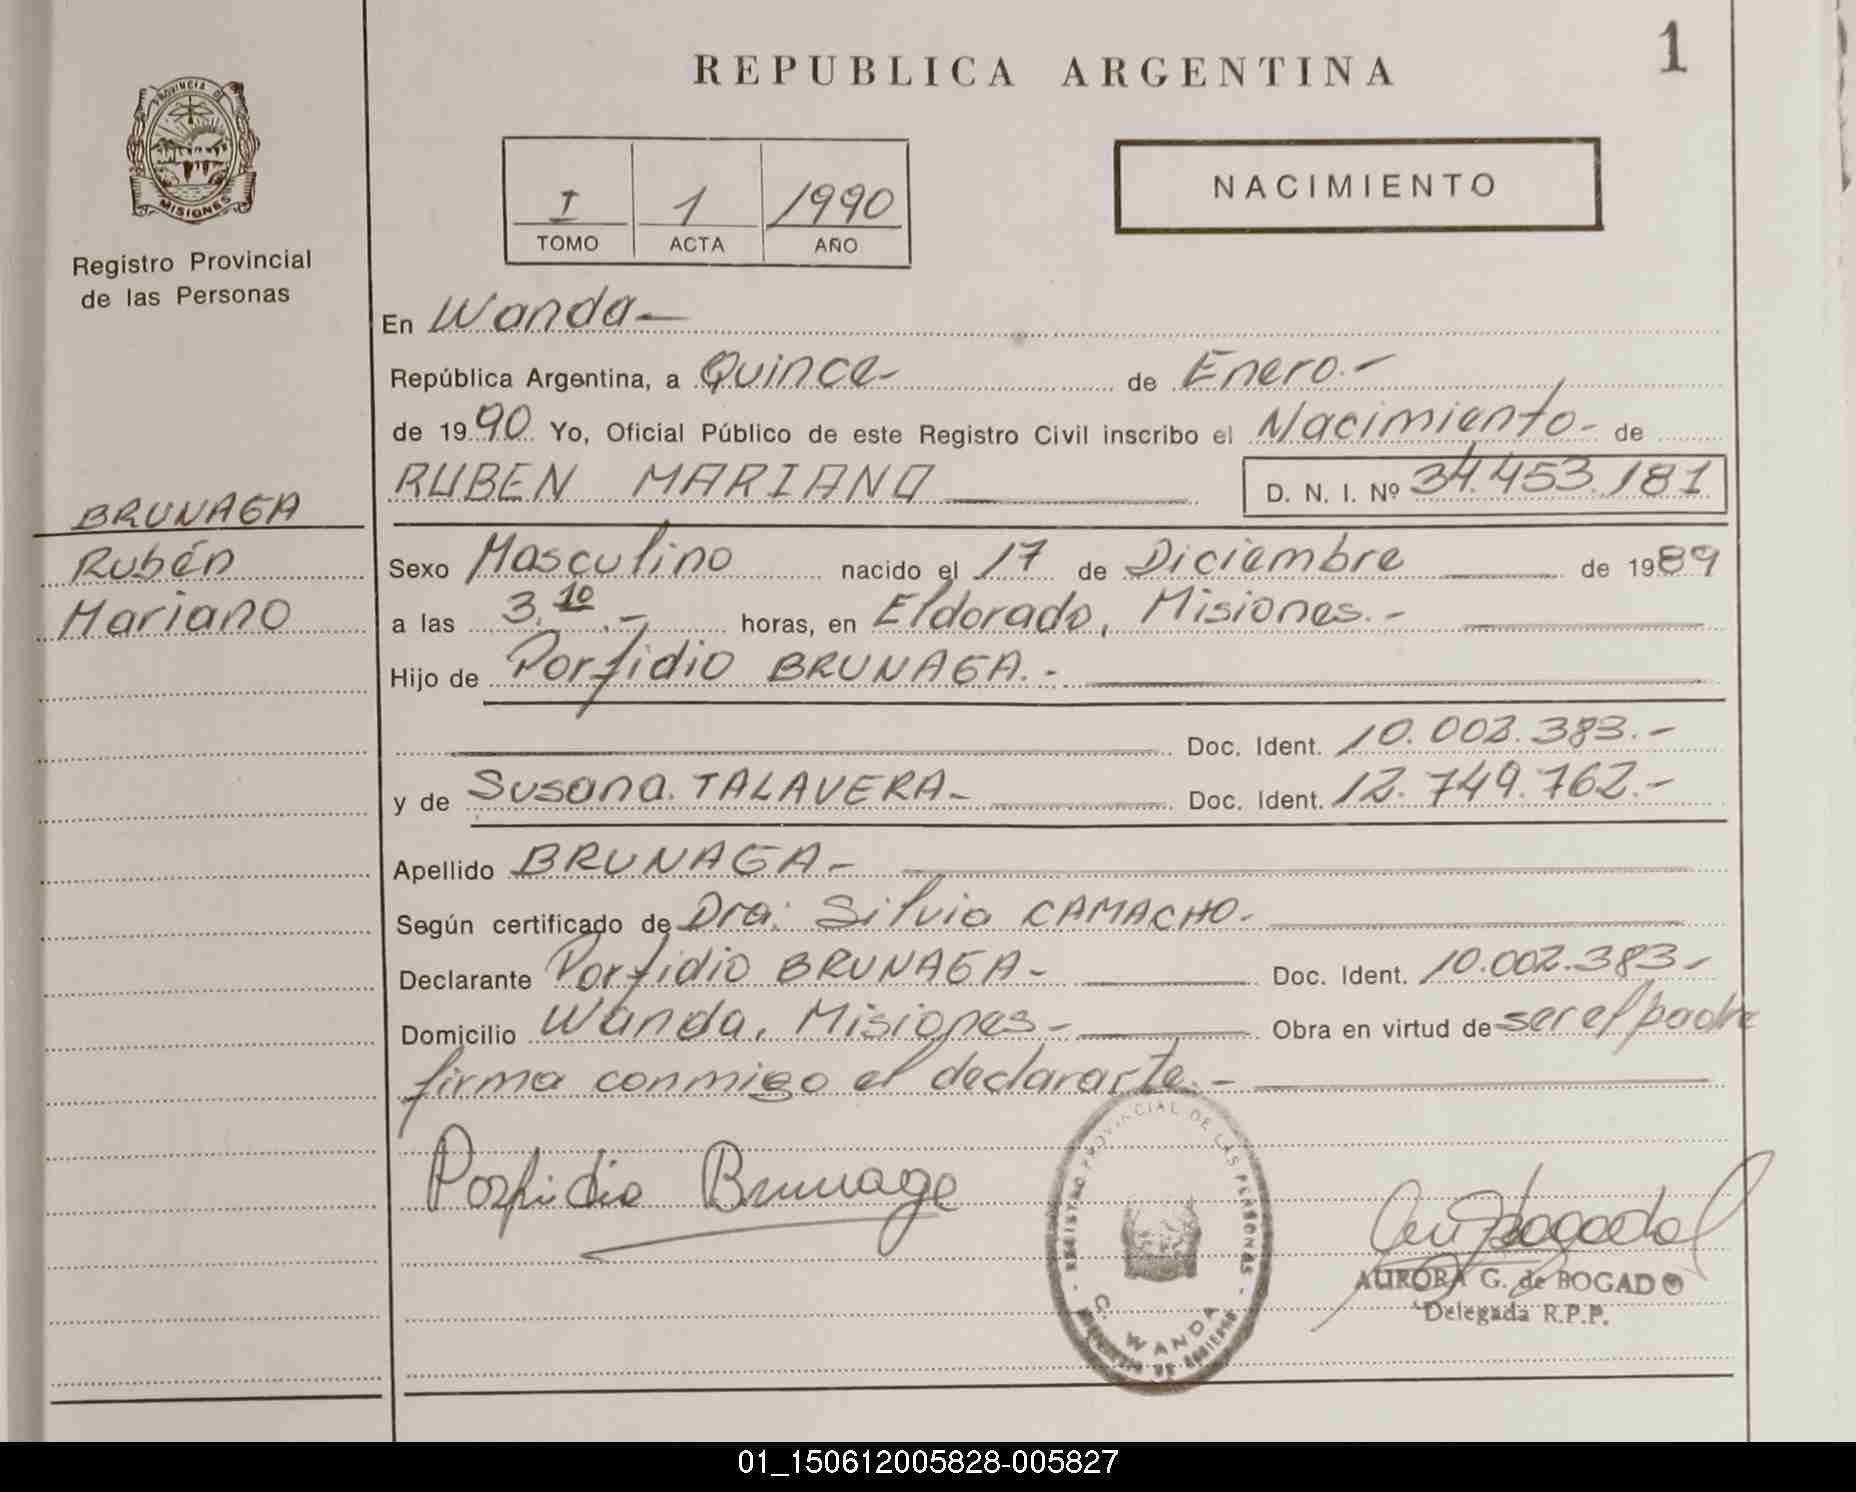 REPUBLICA ARGENTINA
1
PROVINCIA DE
MISIONES
Registro Provincial
de las Personas
I 1 1990
TOMO ACTA AÑO
NACIMIENTO
En Wanda-
República Argentina, a Quince- de Enero.-
de 1990 Yo, Oficial Público de este Registro Civil inscribo el Nacimiento- de
RUBEN MARIANO D. N. I. Nº 34.453.181
BRUNAGA
Rubén
Mariano
Sexo Masculino nacido el 17 de Diciembre de 1989
a las 3,10.- horas, en Eldorado, Misiones.-
Hijo de Porfidio BRUNAGA.-
Doc. Ident. 10.002.383.-
y de Susana TALAVERA- Doc. Ident. 12.749.762.-
Apellido BRUNAGA-
Según certificado de Dra: Silvia CAMACHO.
Declarante Porfidio BRUNAGA- Doc. Ident. 10.002.383-
Domicilio Wanda, Misiones- Obra en virtud de ser el padre
firma conmigo el declarante.-
Porfidio Brunaga
REGISTRO PROVINCIAL DE LAS PERSONAS
C. WANDA
AURORA G. de BOGADO
Delegada R.P.P.
01_150612005828-005827